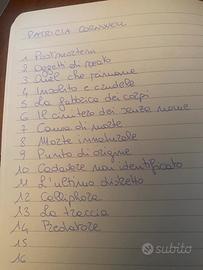 PATRICIA CORNWELL
1 Postmortem
2 Oggetti di reato
3 Quel che rimane
4 Insolito e crudele
5 La fabbrica dei corpi
6 Il cimitero dei senza nome
7 Causa di morte
8 Morte innaturale
9 Punto di origine
10 Cadavere non identificato
11 L'ultimo distretto
12 Calliphora
13 La traccia
14 Predatore
15
16
subito